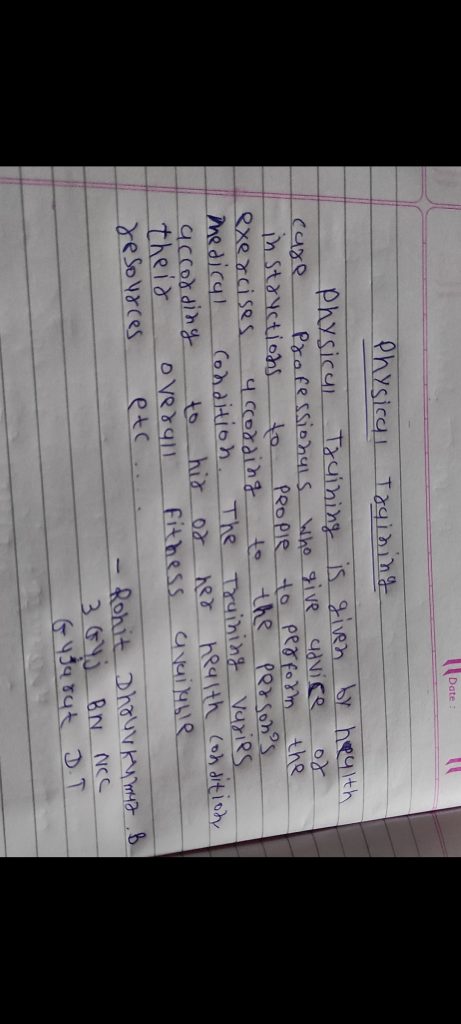 Date :
Physical Training
Physical Training is given by health
care Professionals who give advice or
instructions to people to perform the
exercises according to the person's
medical condition. The Training varies
according to his or her health condition
their overall fitness available
resources etc....
- Rohit Dhruvkumar .B
3 Guj BN NCC
Gujarat D.T